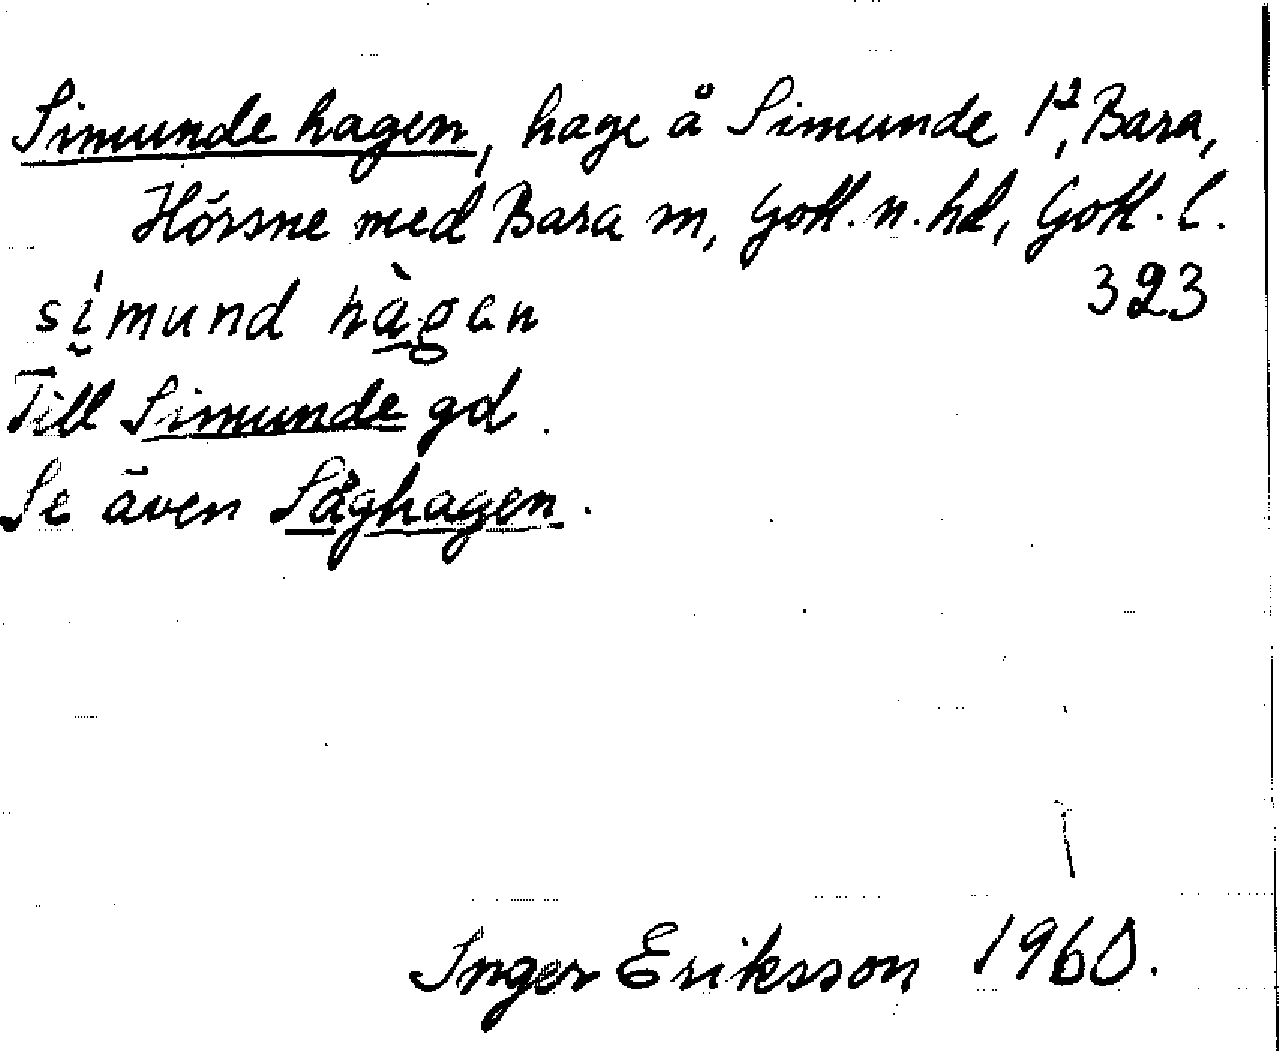 Simunde hagen, hage å Simunde 1², Bara,
Hörsne med Bara sn, Gotl. n. hd, Gotl. l.
323
simund hàgan
Till Simunde gd.
Se även Såghagen.
Inger Eriksson 1960.